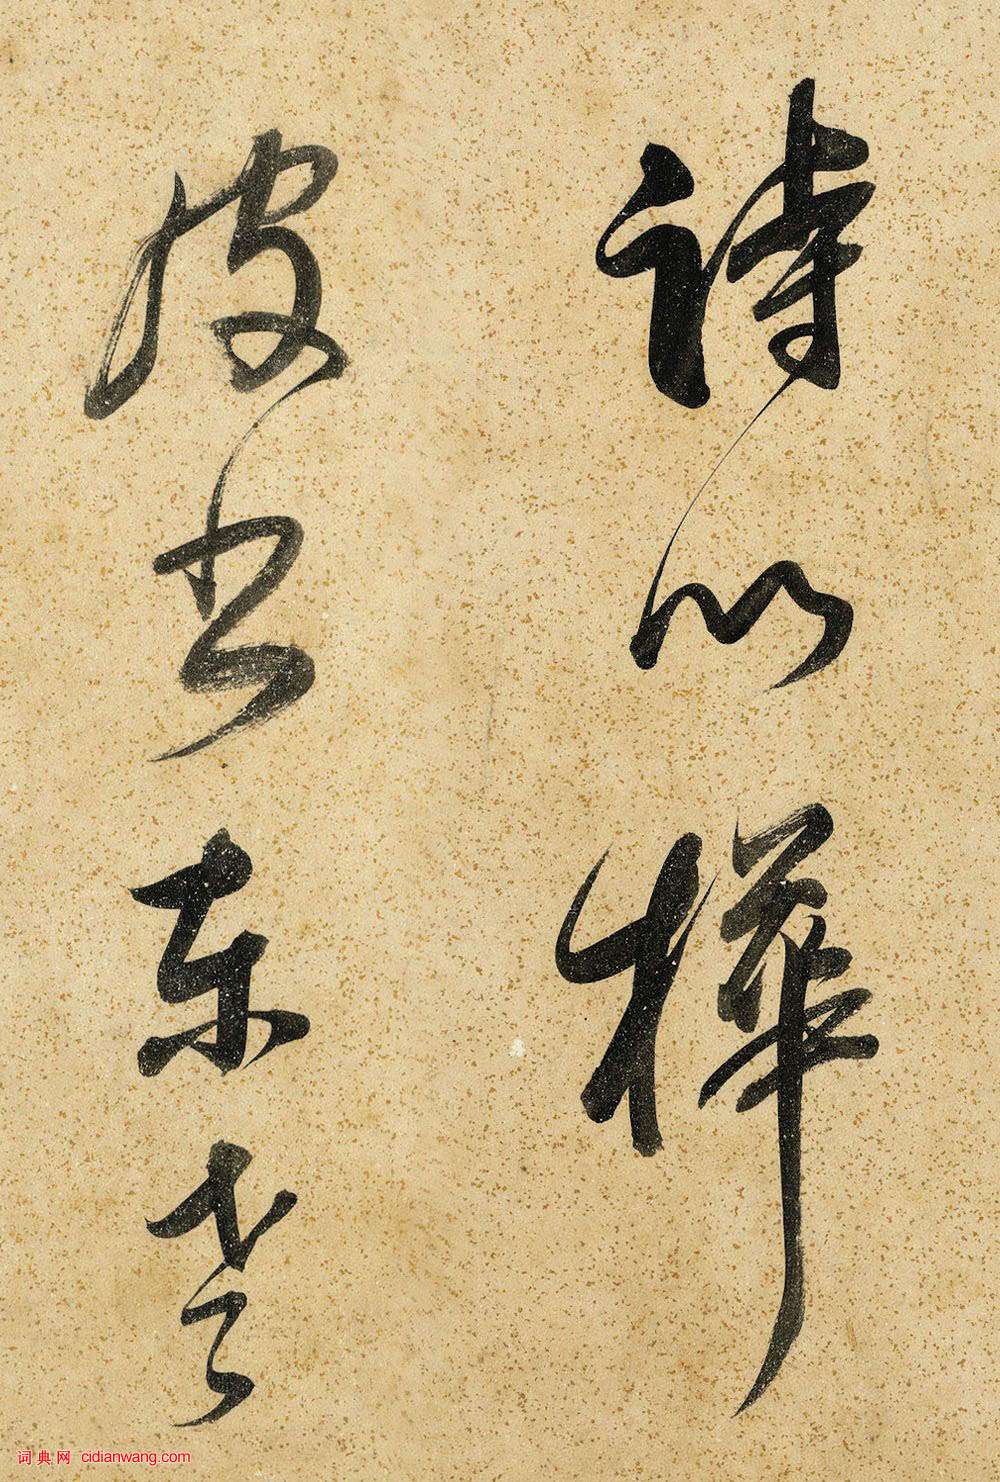 诗以樺
皮书东老
词典网 cidianwang.com